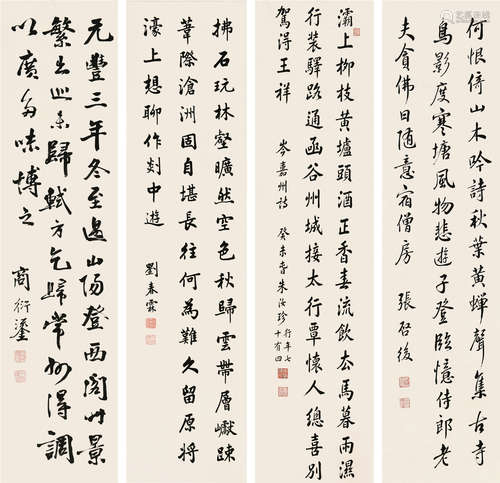 何恨倚山木吟詩秋葉黃蟬聲集古寺
鳥影度寒塘風物悲遊子登臨憶侍郎老
夫貪佛日隨意宿僧房 張啓後
灞上柳枝黃壚頭酒正香春流飲去馬暮雨濕
行裝驛路通函谷州城接太行覃懷人總喜別
駕得王祥 岑嘉州詩 癸未春朱汝珍
行年七
十有四
拂石玩林壑曠然空色秋歸雲帶層巘疎
葦際滄洲固自堪長往何為難久留原將
濠上想聊作剡中遊 劉春霖
元豐三年冬至過山陽登西閣時景
繁出巡未歸軾方乞歸常州得調
以廣
商衍鎏